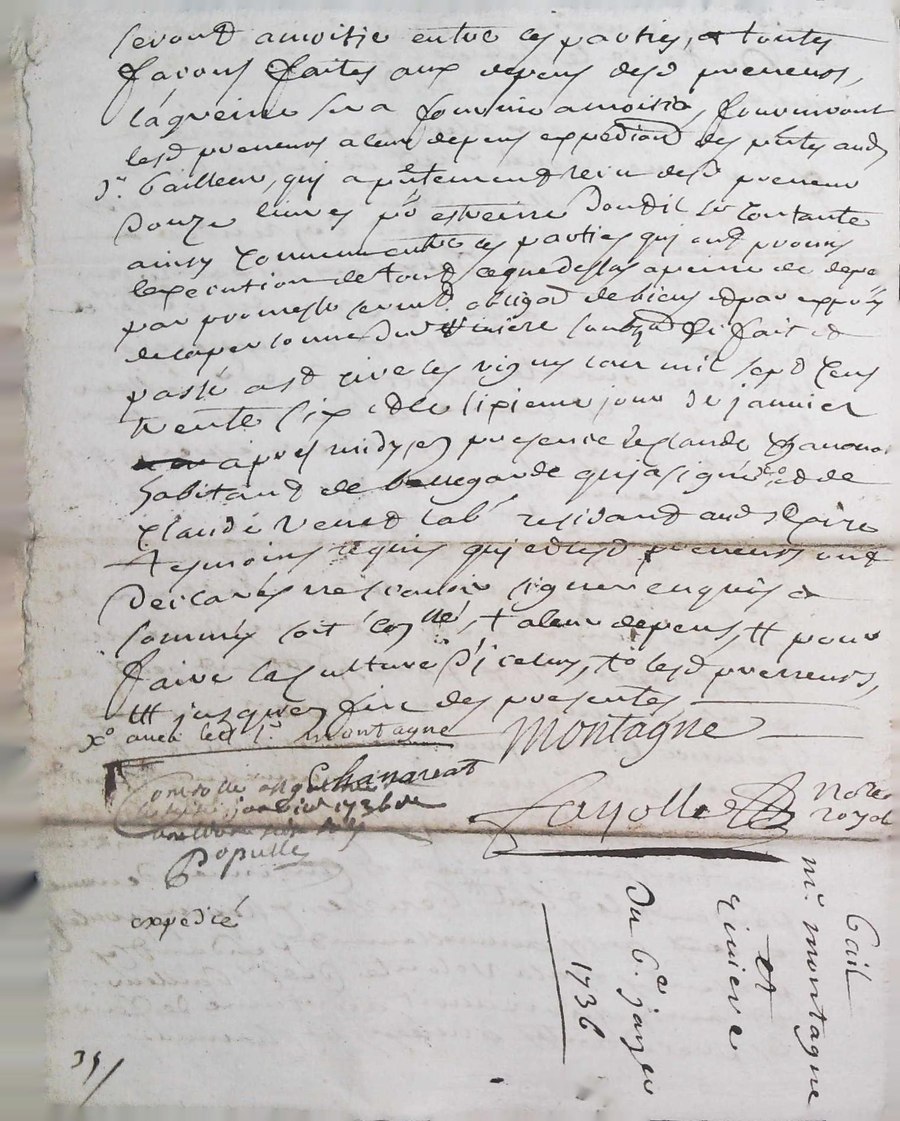 seront a moitie entre les parties, et toutes
facons faites aux depens desd preneurs,
la graine sera fournie a moitie, fourniront
lesd preneurs a leur depens expedion des pntes aud
sr bailleur, qui a pntement reçu desd preneur
Douze livres pr estreine Dondil se contante
ainsy convenu entre les parties qui ont promis
lexecution de tout ce que dessus a peine de depe
par promesse sermt obligaon de biens et par exprés
de la personne dud riviere soubzmon fait et
passé aud rive les vignes lan mil sept cens
trente six et le sixieme jour de janvier
apres midy en presence de claude Chanavat
habitant de beauregarde qui a signé xo et de
claude Venet lab. residant aud
Tesmoins requis qui et lesd preneurs ont
Declarés ne scavoir signer enquis et
sommés soit collé, + a leur depens, tt pour
faire la culture d'icelux, to lesd preneurs,
ttt jusques fin des presentes
xo avec led sr montagne
Montagne
Chanavat
Fayolle Nore royal
Controllé
janvier 1736
Populle
expedié
Bail
mr. montagne
et
riviere
Du 6e janvier
1736
35/